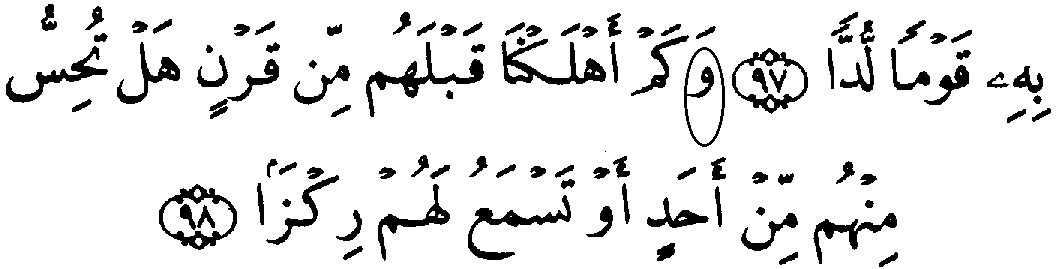 بِهِۦ قَوْمًا لُّدًّا ﴿٩٧﴾ وَكَمْ أَهْلَكْنَا قَبْلَهُم مِّن قَرْنٍ هَلْ تُحِسُّ
مِنْهُم مِّنْ أَحَدٍ أَوْ تَسْمَعُ لَهُمْ رِكْزًا ﴿٩٨﴾